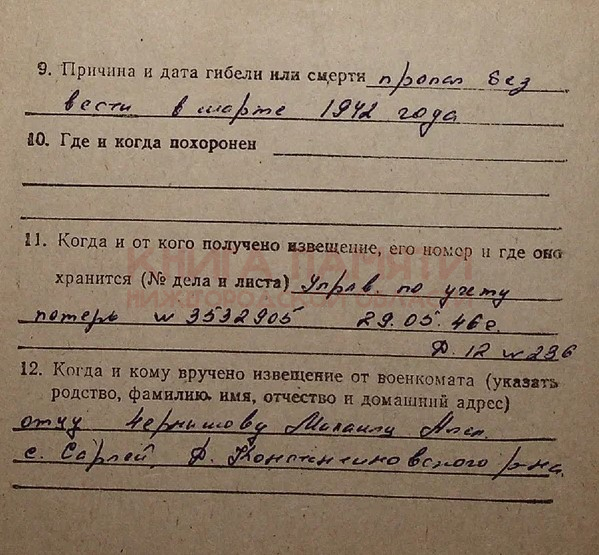 9. Причина и дата гибели или смерти пропал без
вести в марте 1942 года
10. Где и когда похоронен
11. Когда и от кого получено извещение, его номер и где оно
КНИГА ПАМЯТИ
хранится (№ дела и листа) Управ. по учету
НИЖЕГОРОДСКОЙ ОБЛАСТИ
потерь N 3532905 29.05.46г.
Д. 12 N 296
12. Когда и кому вручено извещение от военкомата (указать
родство, фамилию, имя, отчество и домашний адрес)
отцу Чернышову Михаилу Алек.
с. Сарлей, Д. Константиновского р-на.